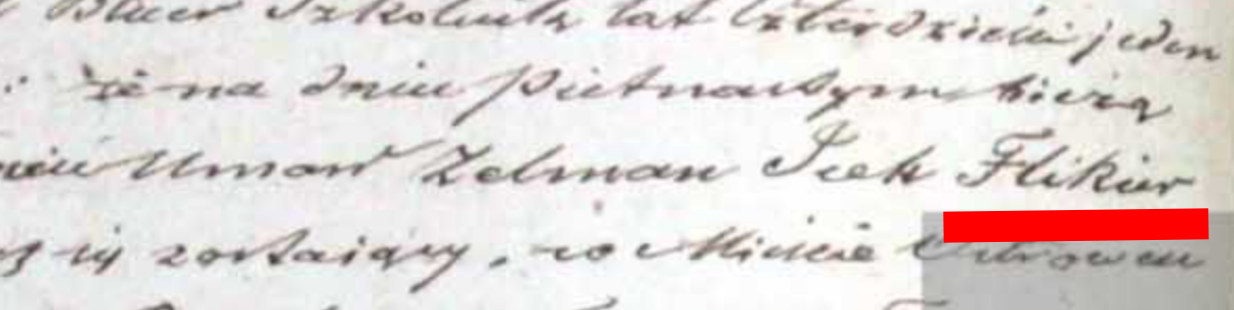 Szkolnik lat Czterdzieści jeden
że na dniu Pietnastym bieżą
Umarł Zelman Icek Flikier
się zostaiący, w Mieście Ostrowcu